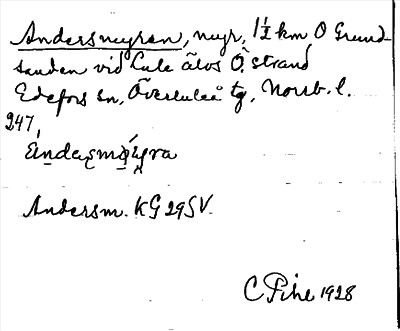 Andersmyran, myr, 1½ km O Grund-
sanden vid Lule älvs Ö. strand
Edefors sn, Överluleå tg, Norrb. l.
247,
Andersm. KG 29 SV.
C Pihl 1928